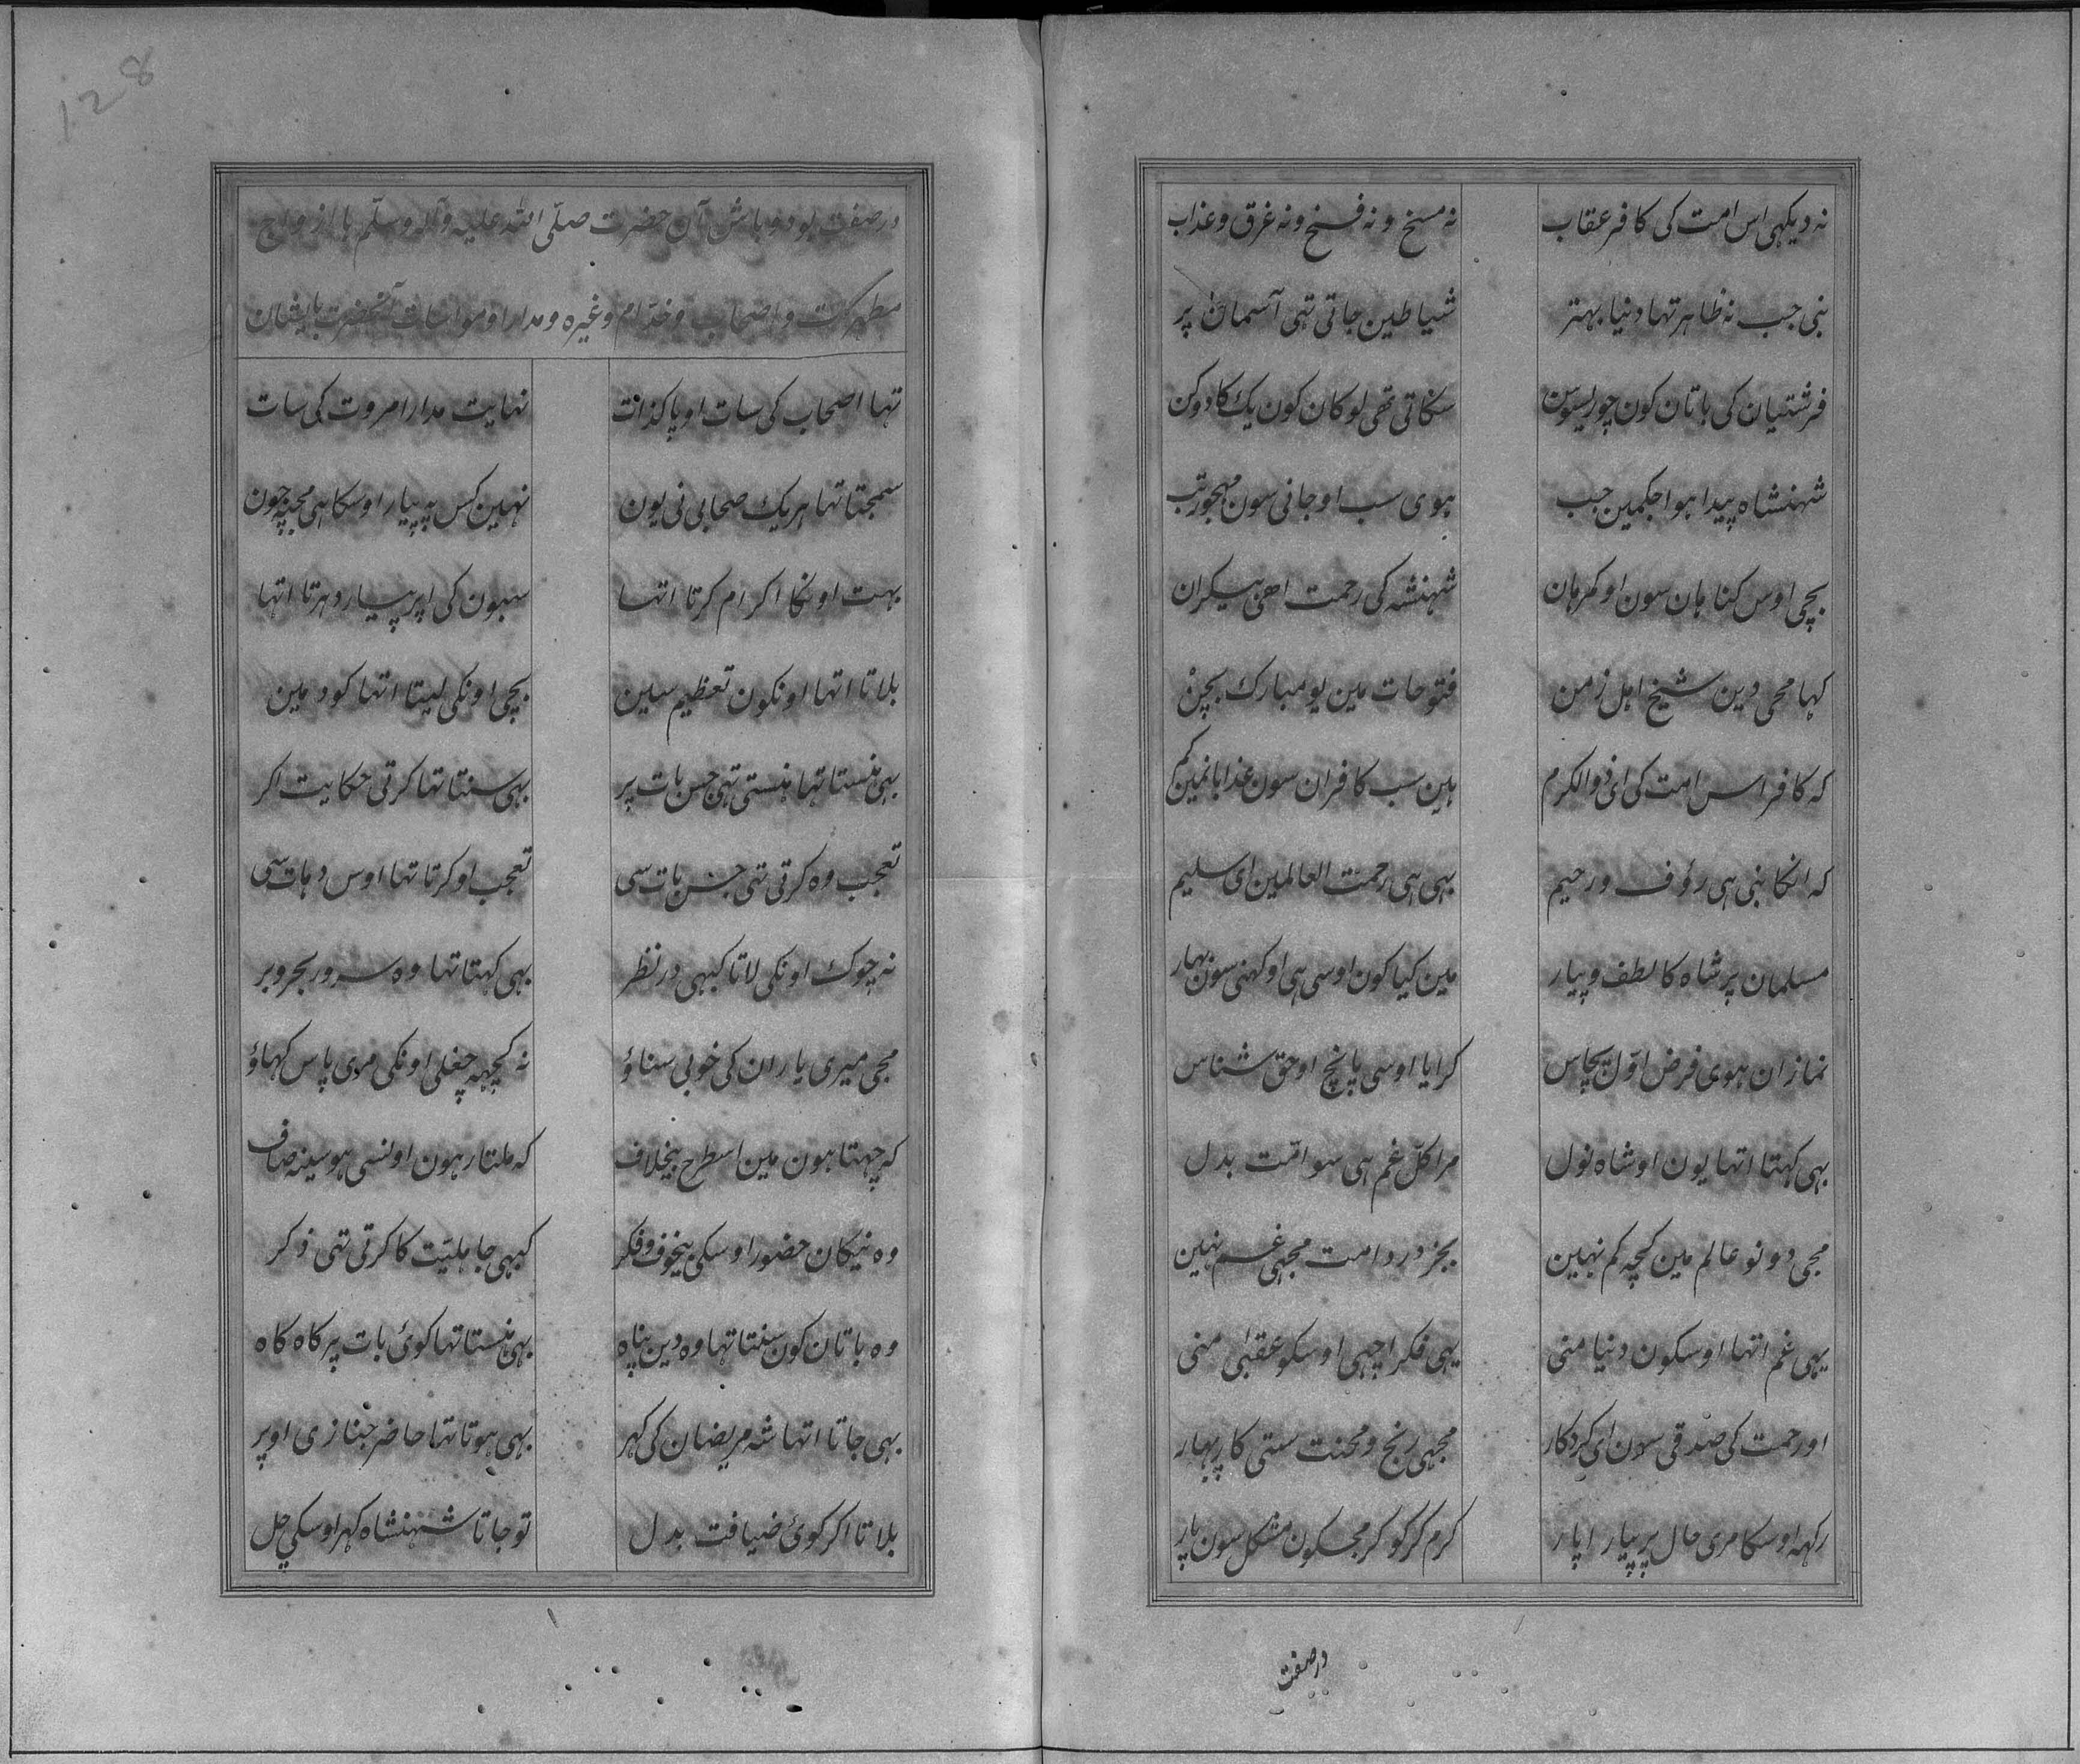 نہ دیکہی اس امت کی کافر عقاب نہ مسخ و نہ فسخ و نہ غرق و عذاب
نبی جب نہ ظاہر تہا دنیا بہتر شیاطین جاتی تہی آسمان پر
فرشتیان کی باتان کون چوراسیون سکاتی تہی لوکان کون یک کا دوکن
شہنشاہ پیدا ہوا جکمین جب ہوی سب او جانی سون مہجور تب
بچی اوس کناہان سون او کمرہان شہنشہ کی رحمت اهی بیکران
کہا محی دین شیخ اہل زمن فتوحات مین یو مبارک بچن
کہ کافر اس امت کی ای ذوالکرم ہین سب کافران سون عذابا نمین کم
کہ انکا نبی ہی رؤف و رحیم بہی ہی رحمت العالمین ای سلیم
مسلمان پر شاہ کا لطف و پیار مین کیا کون اوسی ہی او کہنی سون بہار
نمازان ہوی فرض اوّل پچاس کرایا اوسی پانچ او حق شناس
بہی کہتا اتہا یون او شاہ نول مرا کل غم ہی سو امّت بدل
مجی دونو عالم مین کچہ کم نہین بجز درد امت مجہی غم نہین
یہی غم اتہا اوسکون دنیا منی یہی فکر اچہی اوسکو عقبیٰ منی
او رحمت کی صدقی سون ای کردکار مجہی رنج و محنت ستی کاڑ بہار
رکہہ اوسکا مری حال پر پیار اپار کرم کر کو کر مجکون مشکل سون پار
در صفت
128
در صفت بود و باش آن حضرت صلّی اللہ علیہ وآلہ وسلّم با ازواج
مطہرات و اصحاب و خدّام وغیرہ و مدارا و مواسات آنحضرت بایشان
تہا اصحاب کی سات او پاکذات نہایت مدارا مروت کی سات
سمجتا تہا ہریک صحابی نی یون نہین کس پہ پیار اوسکا ہی مجہ پہ جون
بہت اونکا اکرام کرتا اتہا سبہون کی اپر پیار دہرتا اتہا
بلاتا اتہا اونکون تعظیم سین بچی اونکی لیتا اتہا کود مین
بہی ہنستا تہا ہنستی تہی جس بات پر بہی سنتا تہا کرتی حکایت اکر
تعجب وہ کرتی تہی جس بات سی تعجب او کرتا تہا اوس دہات سی
نہ چوک اونکی لاتا کبہی در نظر بہی کہتا تہا وہ سرور بحر و بر
مجی میری یاران کی خوبی سناؤ نہ کچہہ چغلی اونکی مری پاس کہاؤ
کہ چہتا ہون مین اسطرح بیخلاف کہ ملتا رہون اونسی ہو سینہ صاف
وہ نیکان حضور اوسکی بیخوف و فکر کبہی جاہلیّت کا کرتی تہی ذکر
وہ باتان کون سنتا تہا وہ دین پناہ بہی ہنستا تہا کوئی بات پر کاہ کاہ
بہی جاتا اتہا شہ مریضان کی کہر بہی ہوتا تہا حاضر جنازی اوپر
بلاتا اکر کوئی ضیافت بدل تو جاتا شہنشاہ کہر اوسکی چل